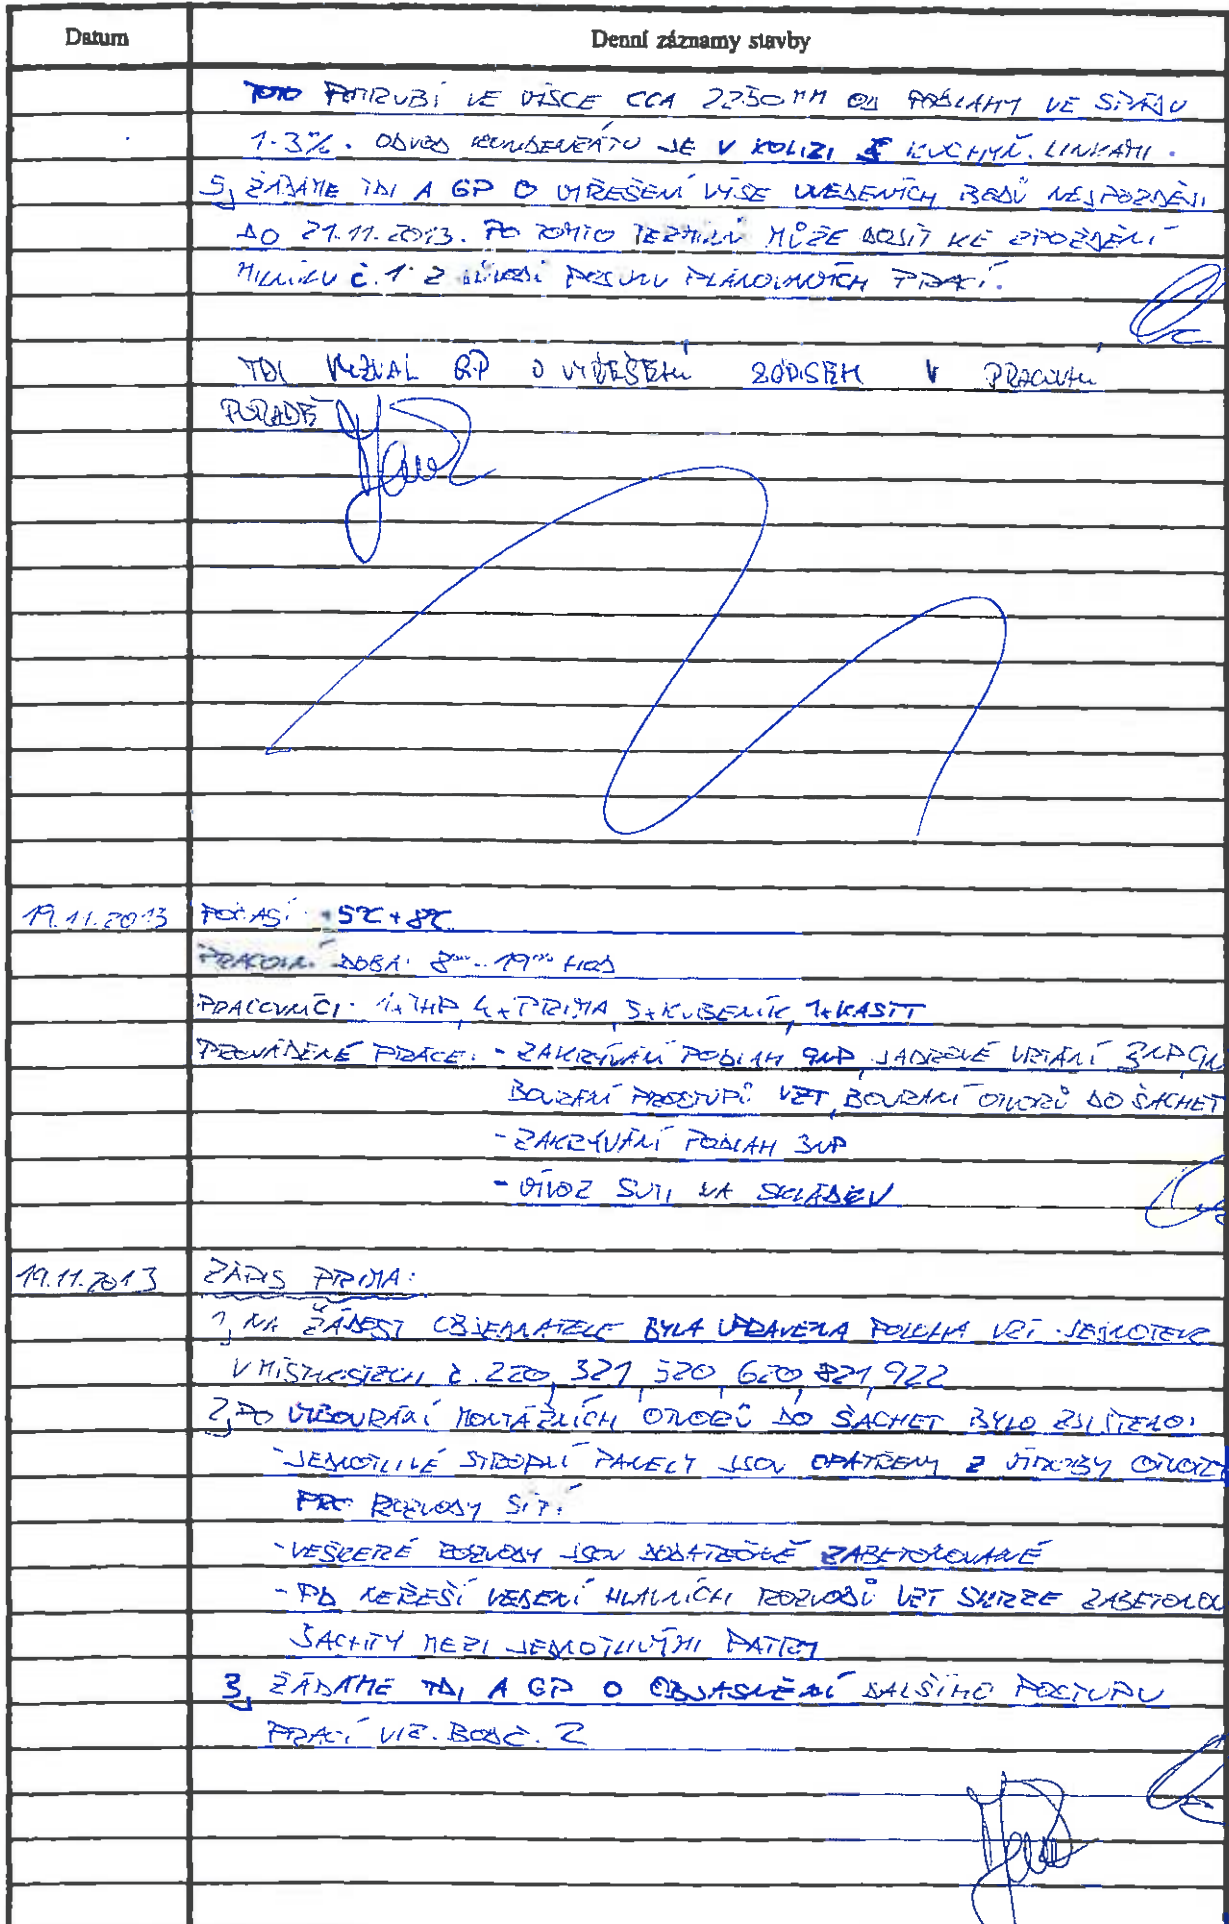 Datum
Denní záznamy stavby
TOTO POTRUBÍ VE VÝŠCE CCA 2250 MM OD PODLAHY VE SPÁDU
1-3%. ODVOD KONDENZÁTU JE V KOLIZI S KUCHYŇ. LINKAMI.
5, ŽÁDÁME TDI A GP O VYŘEŠENÍ VÝŠE UVEDENÝCH BODŮ NEJPOZDĚJI
DO 21.11.2013. PO TOMTO TERMÍNU MŮŽE DOJÍT KE ZPOŽDĚNÍ
MILNÍKU č. 1 Z DŮVODU POSUNU PLÁNOVANÝCH PRACÍ.
TDI VYZVAL GP O VYŘEŠENÍ ZÁPISEM V PRACOVNÍ
PORADĚ
19.11.2013
POČASÍ: +5°C +8°C
PRACOVNÍ DOBA: 8⁰⁰ - 19⁰⁰ HOD
PRACOVNÍCI: 1x THP, 4x PRIMA, 5x KUBENÍK, 1x KASTT
PROVÁDĚNÉ PRÁCE: - ZAKRÝVÁNÍ PODLAH 9NP, JÁDROVÉ VRTÁNÍ 3NP,
BOURÁNÍ PROSTUPŮ VZT, BOURÁNÍ OTVORŮ DO ŠACHET
- ZAKRÝVÁNÍ PODLAH 3NP
- ODVOZ SUTI NA SKLÁDKU
19.11.2013
ZÁPIS PRIMA:
1, NA ŽÁDOST OBJEDNATELE BYLA UPRAVENA POLOHA VZT JEDNOTEK
V MÍSTNOSTECH č. 220, 321, 520, 620, 821, 922
2, PO VYBOURÁNÍ MONTÁŽNÍCH OTVORŮ DO ŠACHET BYLO ZJIŠTĚNO:
- JEDNOTLIVÉ STROPNÍ PANELY JSOU OPATŘENY Z VÝROBY OTVORY
PRO ROZVODY SÍTÍ
- VEŠKERÉ ROZVODY JSOU DODATEČNĚ ZABETONOVANÉ
- PD NEŘEŠÍ VEDENÍ HLAVNÍCH ROZVODŮ VZT SKRZE ZABETONOV
ŠACHTY MEZI JEDNOTLIVÝMI PATRY
3, ŽÁDÁME TDI A GP O OBJASNĚNÍ DALŠÍHO POSTUPU
PRACÍ VIZ. BOD Č. 2